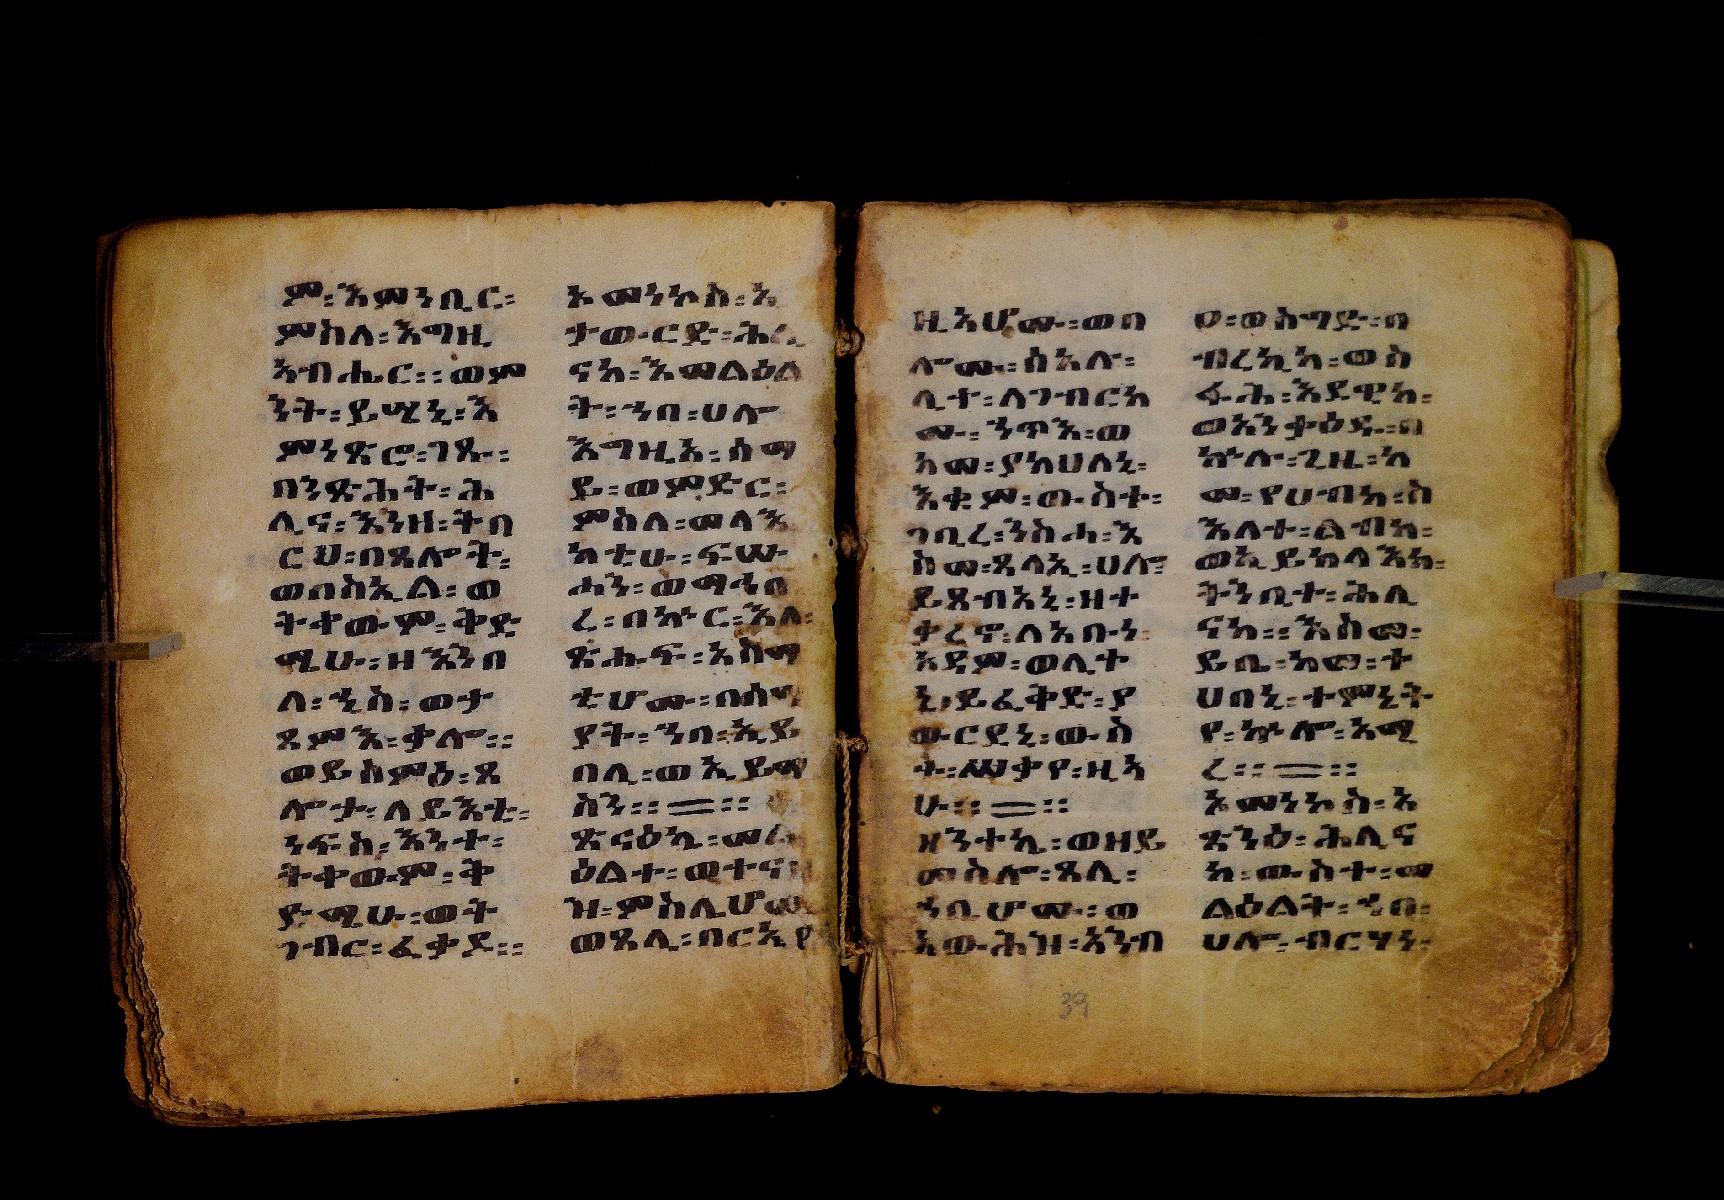 ም፡እምንቢር፡
ምስለ፡እግዚ
አብሔር፡፡ወም
ንት፡ይሜኒ፡እ
ምንጽሮ፡ገጹ፡
በንጽሕት፡ሕ
ሊና፡እንዘ፡ትበ
ርህ፡በጸሎት፡
ወበስኢል፡ወ
ትቀውም፡ቅድ
ሜሁ፡ዘእንበ
ለ፡ንስ፡ወታ
ጸምእ፡ቃሎ፡፡
ወይሰምዕ፡ጸ
ሎታ፡ለይእቲ፡
ነፍስ፡እንተ፡
ትቀውም፡ቅ
ድሜሁ፡ወት
ገብር፡ፈቃደ፡፡
አመነኮስ፡አ
ታውርድ፡ሕሊ
ናከ፡እመልዕል
ት፡ኀበ፡ሀሎ
እግዚእ፡ሰማ
ይ፡ወምድር፡
ምስለ፡መላእ
ክቲሁ፡ፍሡ
ሓን፡ወማኅበ
ረ፡በኵር፡እለ፡
ጽሑፍ፡አስማ
ቲሆሙ፡በሰማ
ያት፡ኀበ፡ኢይ
በሊ፡ወኢይማ
ስን፡፡፡፡
ጽናዕኬ፡መ
ዕልተ፡ወተና
ዝ፡ምስሊሆሙ
ወጸሊ፡በርእየ
ዚአሆሙ፡ወበ
ሎሙ፡ሰአሉ፡
ሊተ፡ለገብርክ
ሙ፡ንጥእ፡ወ
አመ፡ያክህለኒ፡
እቁም፡ውስተ፡
ገቢረ፡ንስሓ፡እ
ስመ፡ጸላኢ፡ሀሎ፡
ይጸብአኒ፡ዘተ
ቃረኖ፡ለአቡነ፡
አዳም፡ወሊተ
ኒ፡ይፈቅድ፡ያ
ውርደኒ፡ውስ
ተ፡ሠቃየ፡ዚአ
ሁ፡፡፡፡
ዘንተኬ፡ወዘይ
መስሎ፡ጸሊ፡
ኀቢሆሙ፡ወ
አውሕዝ፡አንብ
ዐ፡ወስግድ፡በ
ብረኪከ፡ወስ
ፋሕ፡እደዊከ፡
ወአንቃዕዱ፡በ
ኵሉ፡ጊዜ፡ከ
መ፡የሀብከ፡ስ
እለተ፡ልብከ፡
ወኢይክላእከ፡
ትንቢተ፡ሕሊ
ናከ፡፡እስመ፡
ይቤ፡ከመ፡ተ
ሀበኒ፡ተምኔት
የ፡ኵሎ፡አሚ
ረ፡፡፡፡
አመነኮስ፡አ
ጽንዕ፡ሕሊና
ከ፡ውስተ፡መ
ልዕልት፡ኀበ፡
ሀሎ፡ብርሃነ፡
39